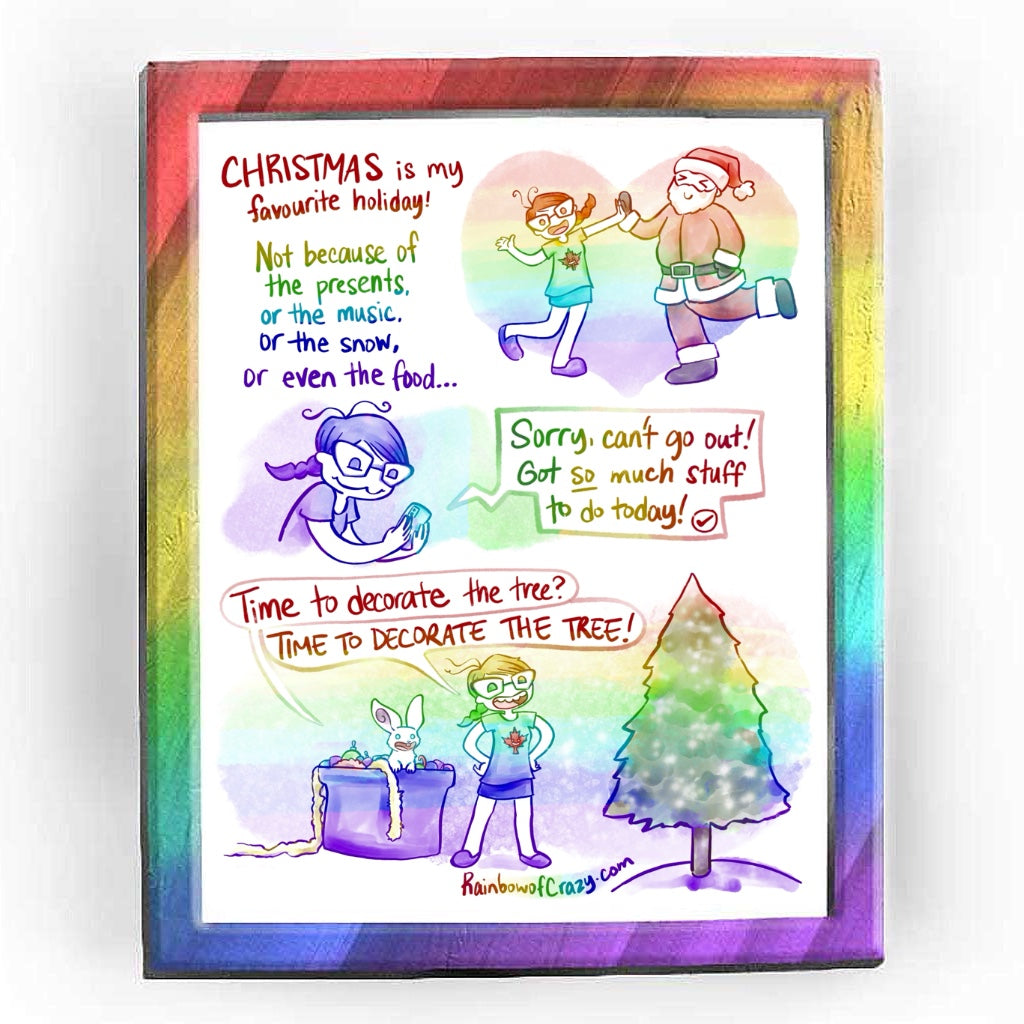 CHRISTMAS is my
favourite holiday!
Not because of
the presents,
or the music,
or the snow,
or even the food...
Sorry, can't go out!
Got so much stuff
to do today!
Time to decorate the tree?
TIME TO DECORATE THE TREE!
RainbowofCrazy.com